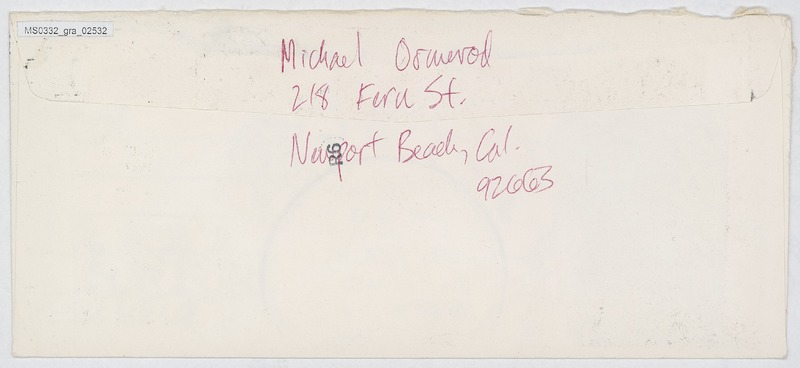 MS0332_gra_02532
Michael Ormerod
218 Fern St.
Newport Beach, Cal.
92663
R6